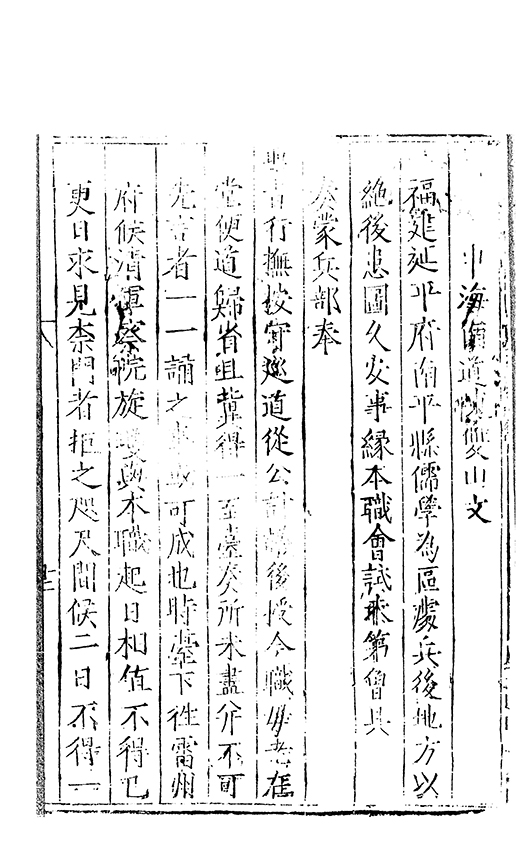 申海南道陳雙山文
福建延平府南平縣儒學為區處兵後地方以
絶後患圖久安事緣本職會試未第會具
奏蒙兵部奉
旨行撫按守廵道從公計議後授今職母老在
堂便道歸省且冀得一至臺奏所未盡并不可
先言者一一誦之事或可成也時臺下往雷州
府候清軍察院旋瓊與本職起日相值不得已
更日求見柰門者拒之咫尺間候二日不得一